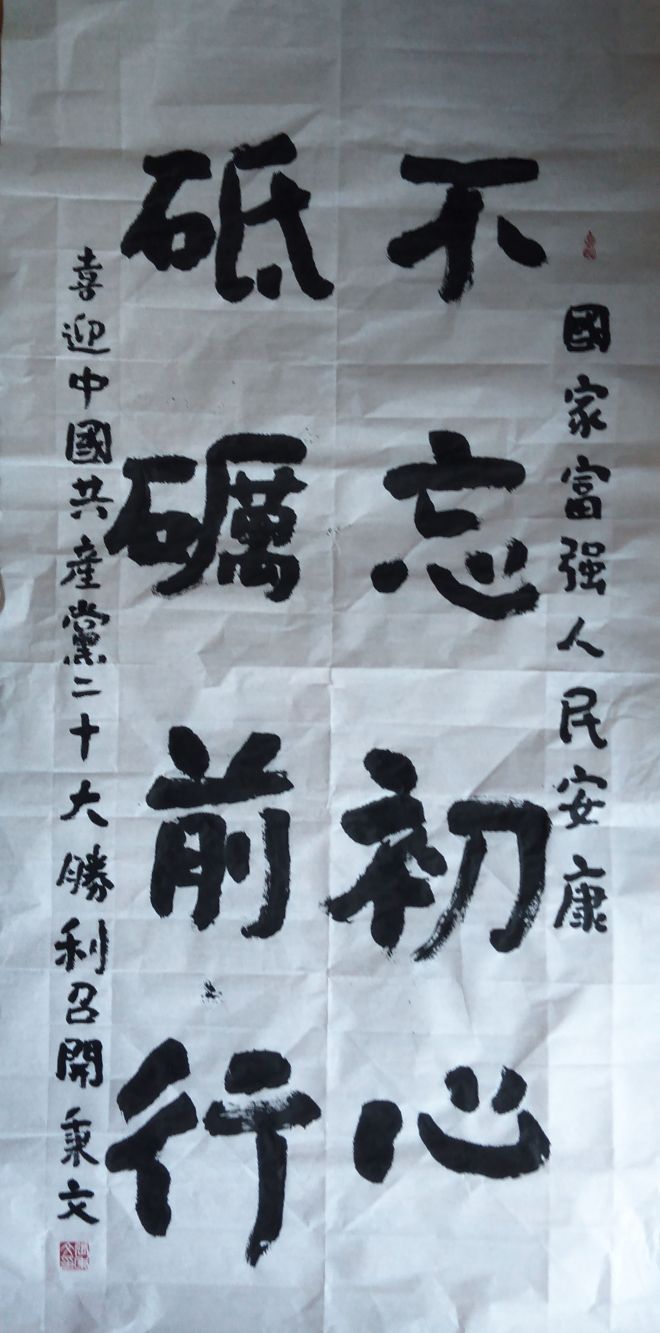 國家富强人民安康
不忘初心
砥礪前行
喜迎中國共產黨二十大勝利召開 秉文